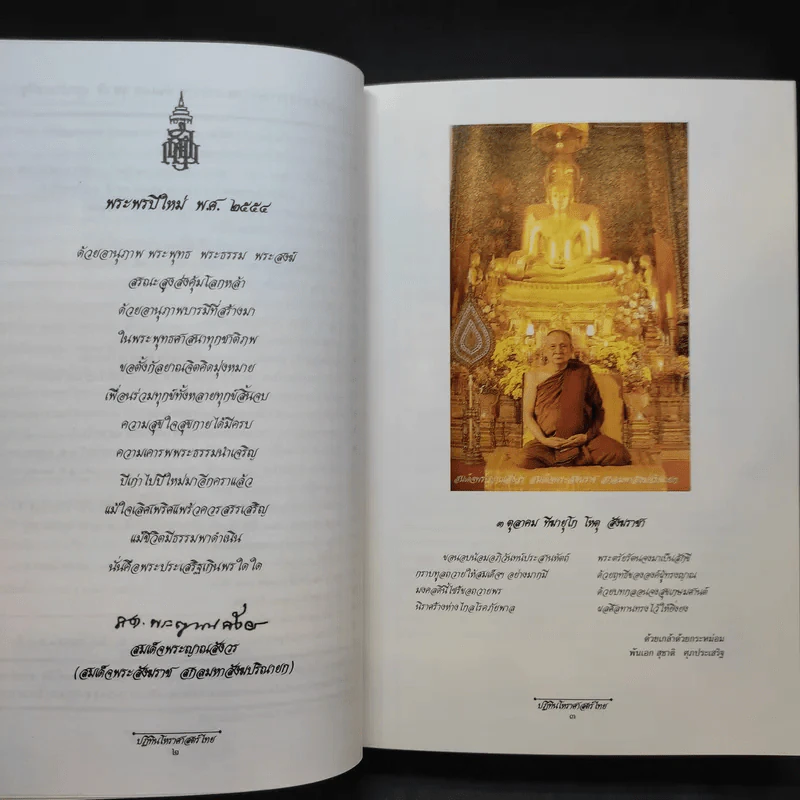 พระพรปีใหม่ พ.ศ. ๒๕๕๔
ด้วยอานุภาพ พระพุทธ พระธรรม พระสงฆ์
สรณะสูงส่งคุ้มโลกหล้า
ด้วยอานุภาพบารมีที่สร้างมา
ในพระพุทธศาสนาทุกชาติภพ
ขอตั้งกัลยาณจิตคิดมุ่งหมาย
เพื่อนร่วมทุกข์ทั้งหลายทุกข์สิ้นจบ
ความสุขใจสุขกายได้มีครบ
ความเคารพพระธรรมนำเจริญ
ปีเก่าไปปีใหม่มาอีกคราแล้ว
แม้ใจเลิศเพริศแพร้วควรสรรเสริญ
แม้ชีวิตมีธรรมพาดำเนิน
นั่นคือพระประเสริฐเกินพรใดใด
สมเด็จพระญาณสังวร
(สมเด็จพระสังฆราช สกลมหาสังฆปริณายก)
ปฏิทินโหราศาสตร์ไทย
๒
สมเด็จพระญาณสังวร สมเด็จพระสังฆราช สกลมหาสังฆปริณายก
๓ ตุลาคม ทีฆายุโก โหตุ สังฆราชา
ขอนอบน้อมอภิวันทน์ประสานหัตถ์ พระตรัยรัตนจงมาเป็นสักขี
กราบทูลถวายให้สมเด็จฯ อย่างมากมี ด้วยฤทธีขององค์ผู้ทรงญาณ
มงคลดีนี้โชว์ขอถวายพร ด้วยบทกลอนจงสุขเกษมศานต์
นิราศร้างห่างไกลโรคภัยพาล ผลศีลทานทรงไว้ให้ยิ่งยง
ด้วยเกล้าด้วยกระหม่อม
พันเอก สุชาติ ศุภประเสริฐ
ปฏิทินโหราศาสตร์ไทย
๓